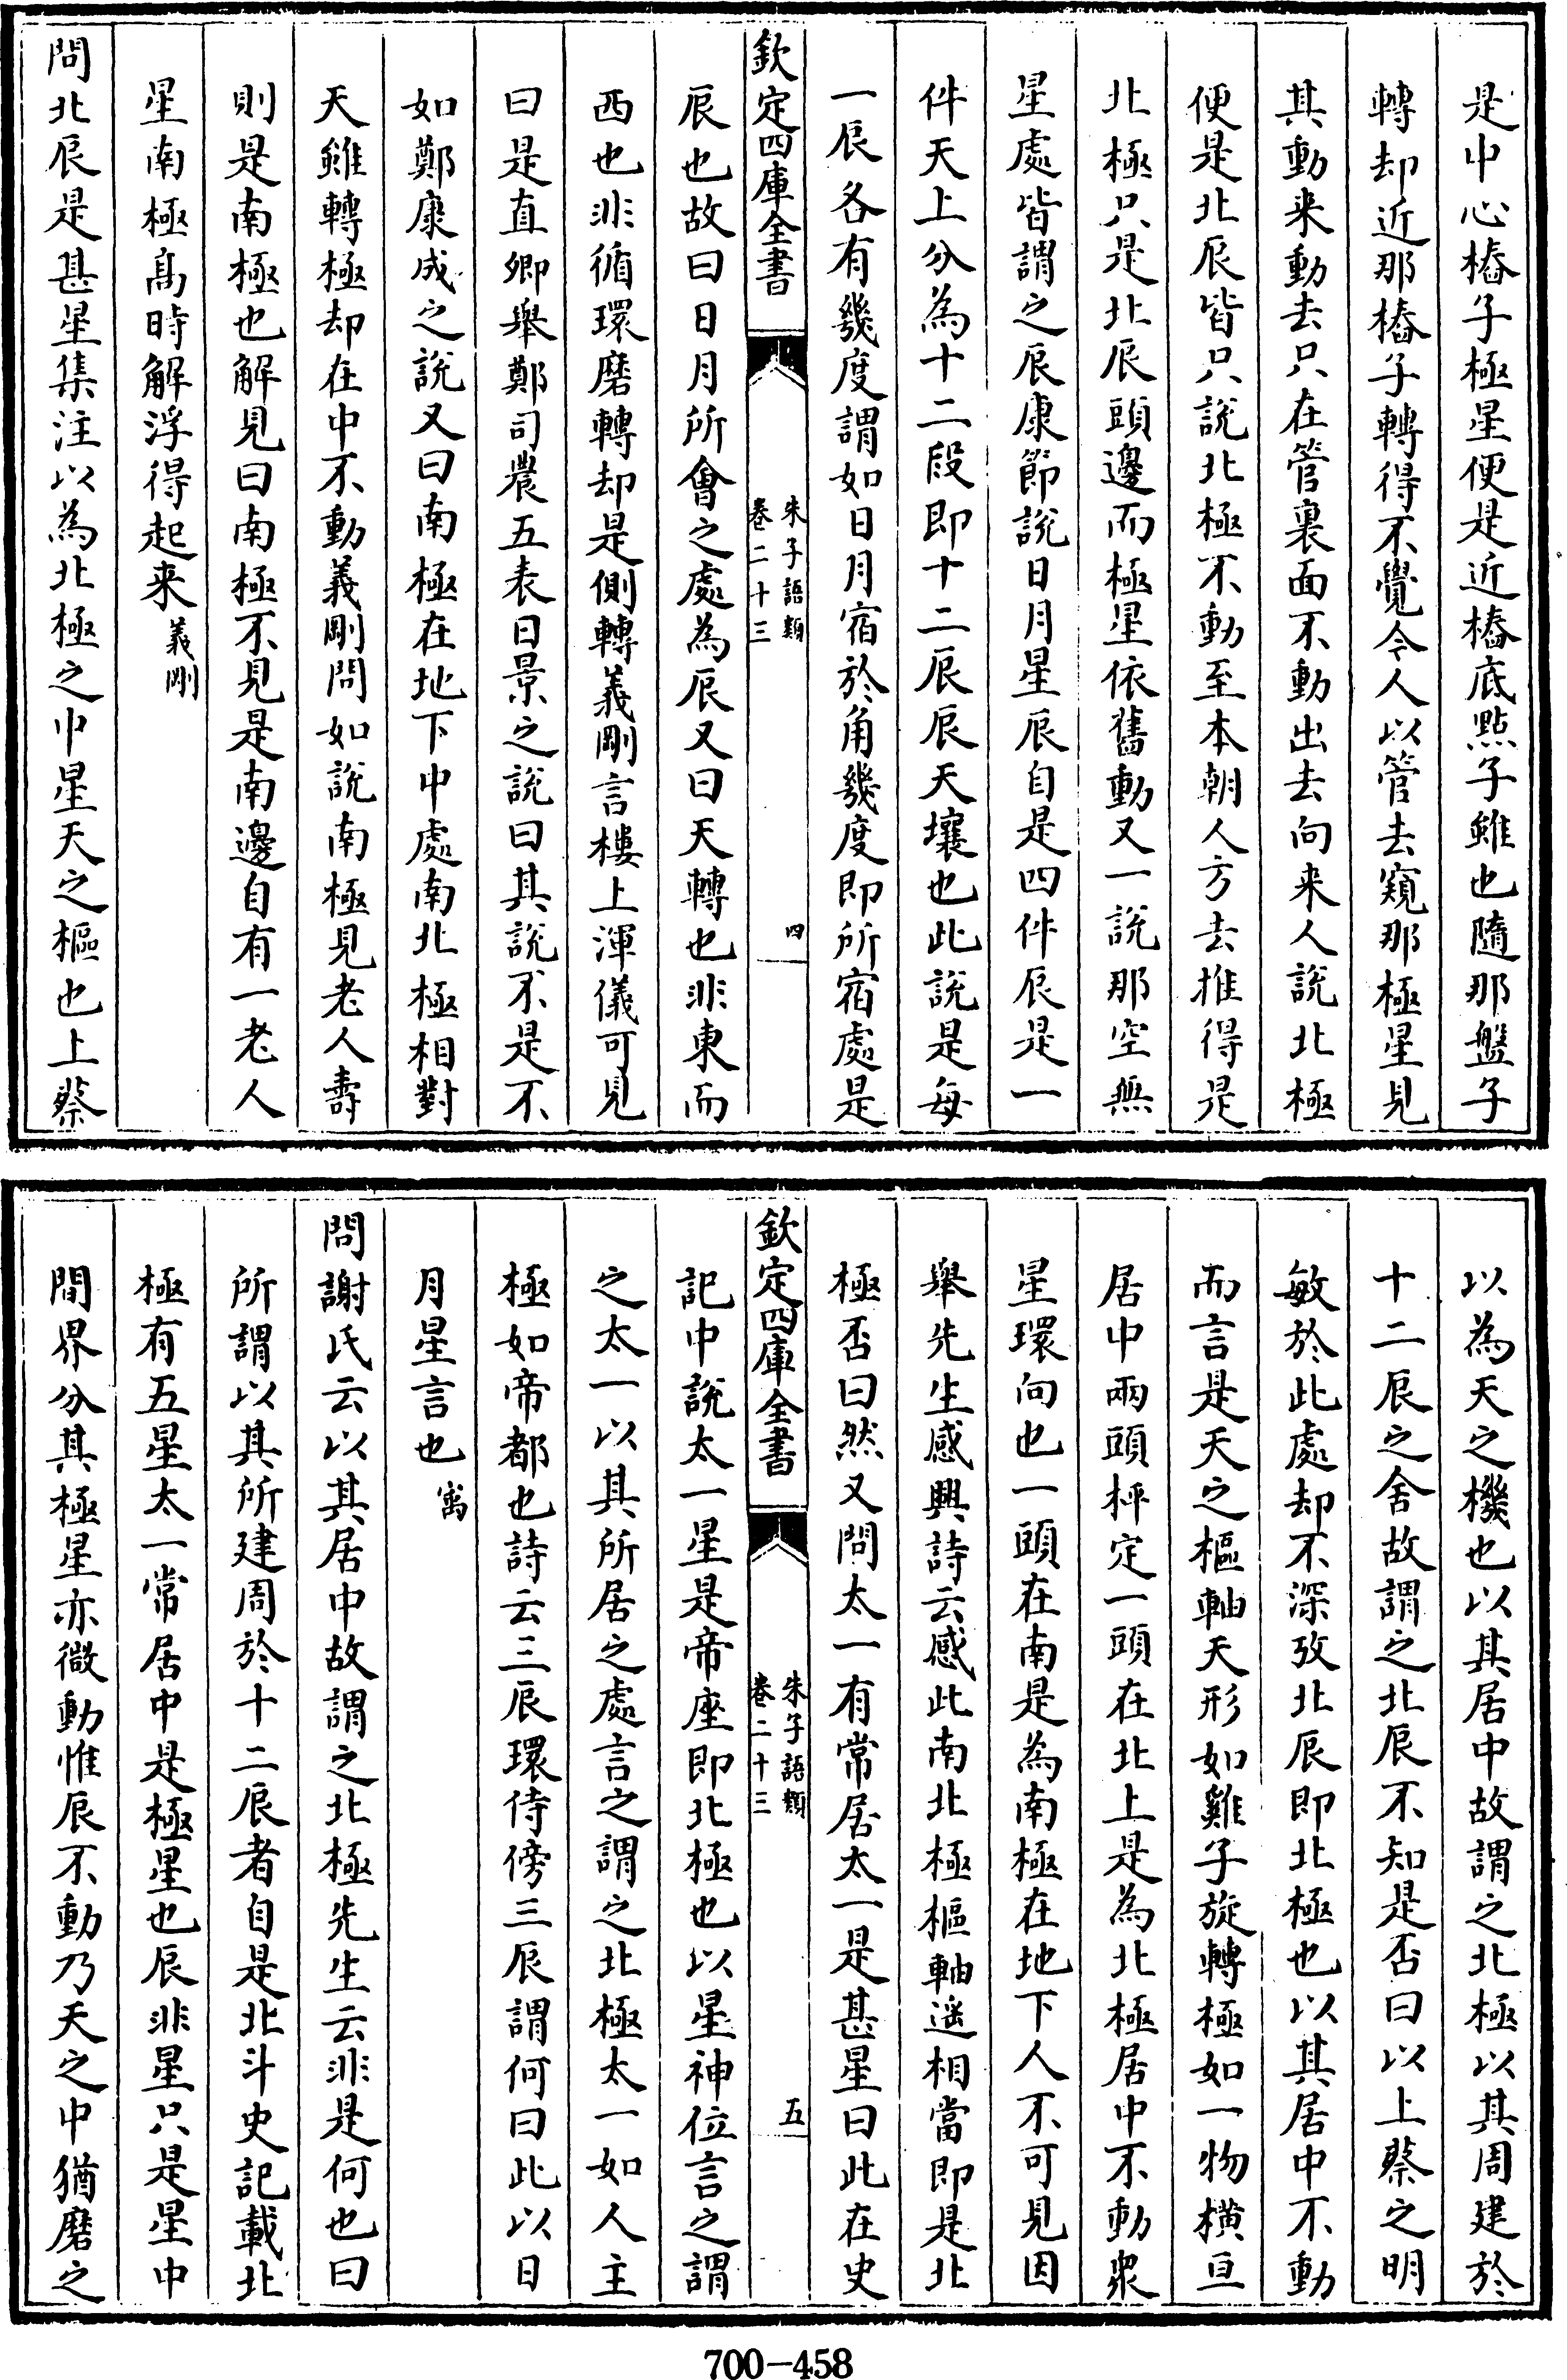 是中心樁子極星便是近樁底點子雖也隨那盤子
轉却近那樁子轉得不覺今人以管去窺那極星見
其動来動去只在管裏面不動出去向来人說北極
便是北辰皆只說北極不動至本朝人方去推得是
北極只是北辰頭邊而極星依舊動又一說那空無
星處皆謂之辰康節說日月星辰自是四件辰是一
件天上分為十二段即十二辰辰天壤也此說是每
一辰各有幾度謂如日月宿於角幾度即所宿處是
欽定四庫全書
朱子語類
卷二十三
四
辰也故曰日月所會之處為辰又曰天轉也非東而
西也非循環磨轉却是側轉義剛言樓上渾儀可見
曰是直卿舉鄭司農五表日景之說曰其說不是不
如鄭康成之說又曰南極在地下中處南北極相對
天雖轉極却在中不動義剛問如說南極見老人壽
則是南極也解見曰南極不見是南邊自有一老人
星南極高時解浮得起来義剛
問北辰是甚星集注以為北極之中星天之樞也上蔡
以為天之機也以其居中故謂之北極以其周建於
十二辰之舍故謂之北辰不知是否曰以上蔡之明
敏於此處却不深攷北辰即北極也以其居中不動
而言是天之樞軸天形如雞子旋轉極如一物橫亘
居中兩頭秤定一頭在北上是為北極居中不動衆
星環向也一頭在南是為南極在地下人不可見因
舉先生感興詩云感此南北極樞軸遥相當即是北
極否曰然又問太一有常居太一是甚星曰此在史
欽定四庫全書
朱子語類
卷二十三
五
記中說太一星是帝座即北極也以星神位言之謂
之太一以其所居之處言之謂之北極太一如人主
極如帝都也詩云三辰環侍傍三辰謂何曰此以日
月星言也㝢
問謝氏云以其居中故謂之北極先生云非是何也曰
所謂以其所建周於十二辰者自是北斗史記載北
極有五星太一常居中是極星也辰非星只是星中
間界分其極星亦微動惟辰不動乃天之中猶磨之
700-458